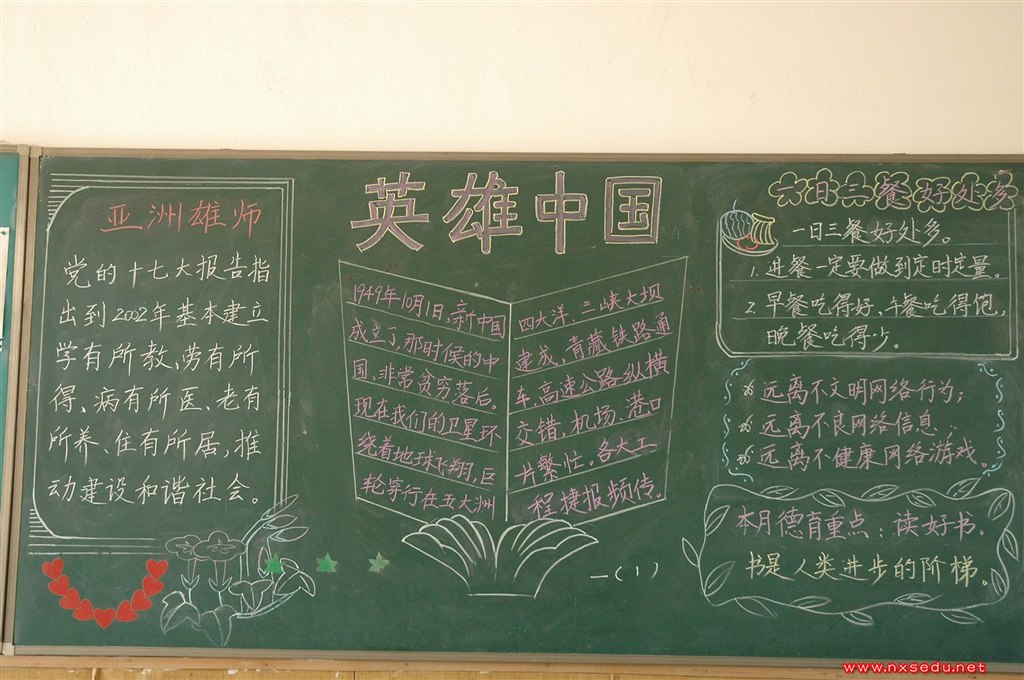 亚洲雄师
党的十七大报告指
出到2002年基本建立
学有所教、劳有所
得、病有所医、老有
所养、住有所居,推
动建设和谐社会。
英雄中国
1949年10月1日,新中国
成立了,那时候的中
国,非常贫穷落后。
现在我们的卫星环
绕着地球飞翔,巨
轮穿行在亚大洲
四大洋。三峡大坝
建成,青藏铁路通
车,高速公路纵横
交错,机场,港口
一片繁忙,各大工
程捷报频传。
一(1)
一日三餐好处多
一日三餐好处多。
1.进餐一定要做到定时定量。
2.早餐吃得好,午餐吃得饱,
晚餐吃得少。
远离不文明网络行为;
远离不良网络信息;
远离不健康网络游戏。
本月德育重点:读好书。
书是人类进步的阶梯。
www.nxsedu.net